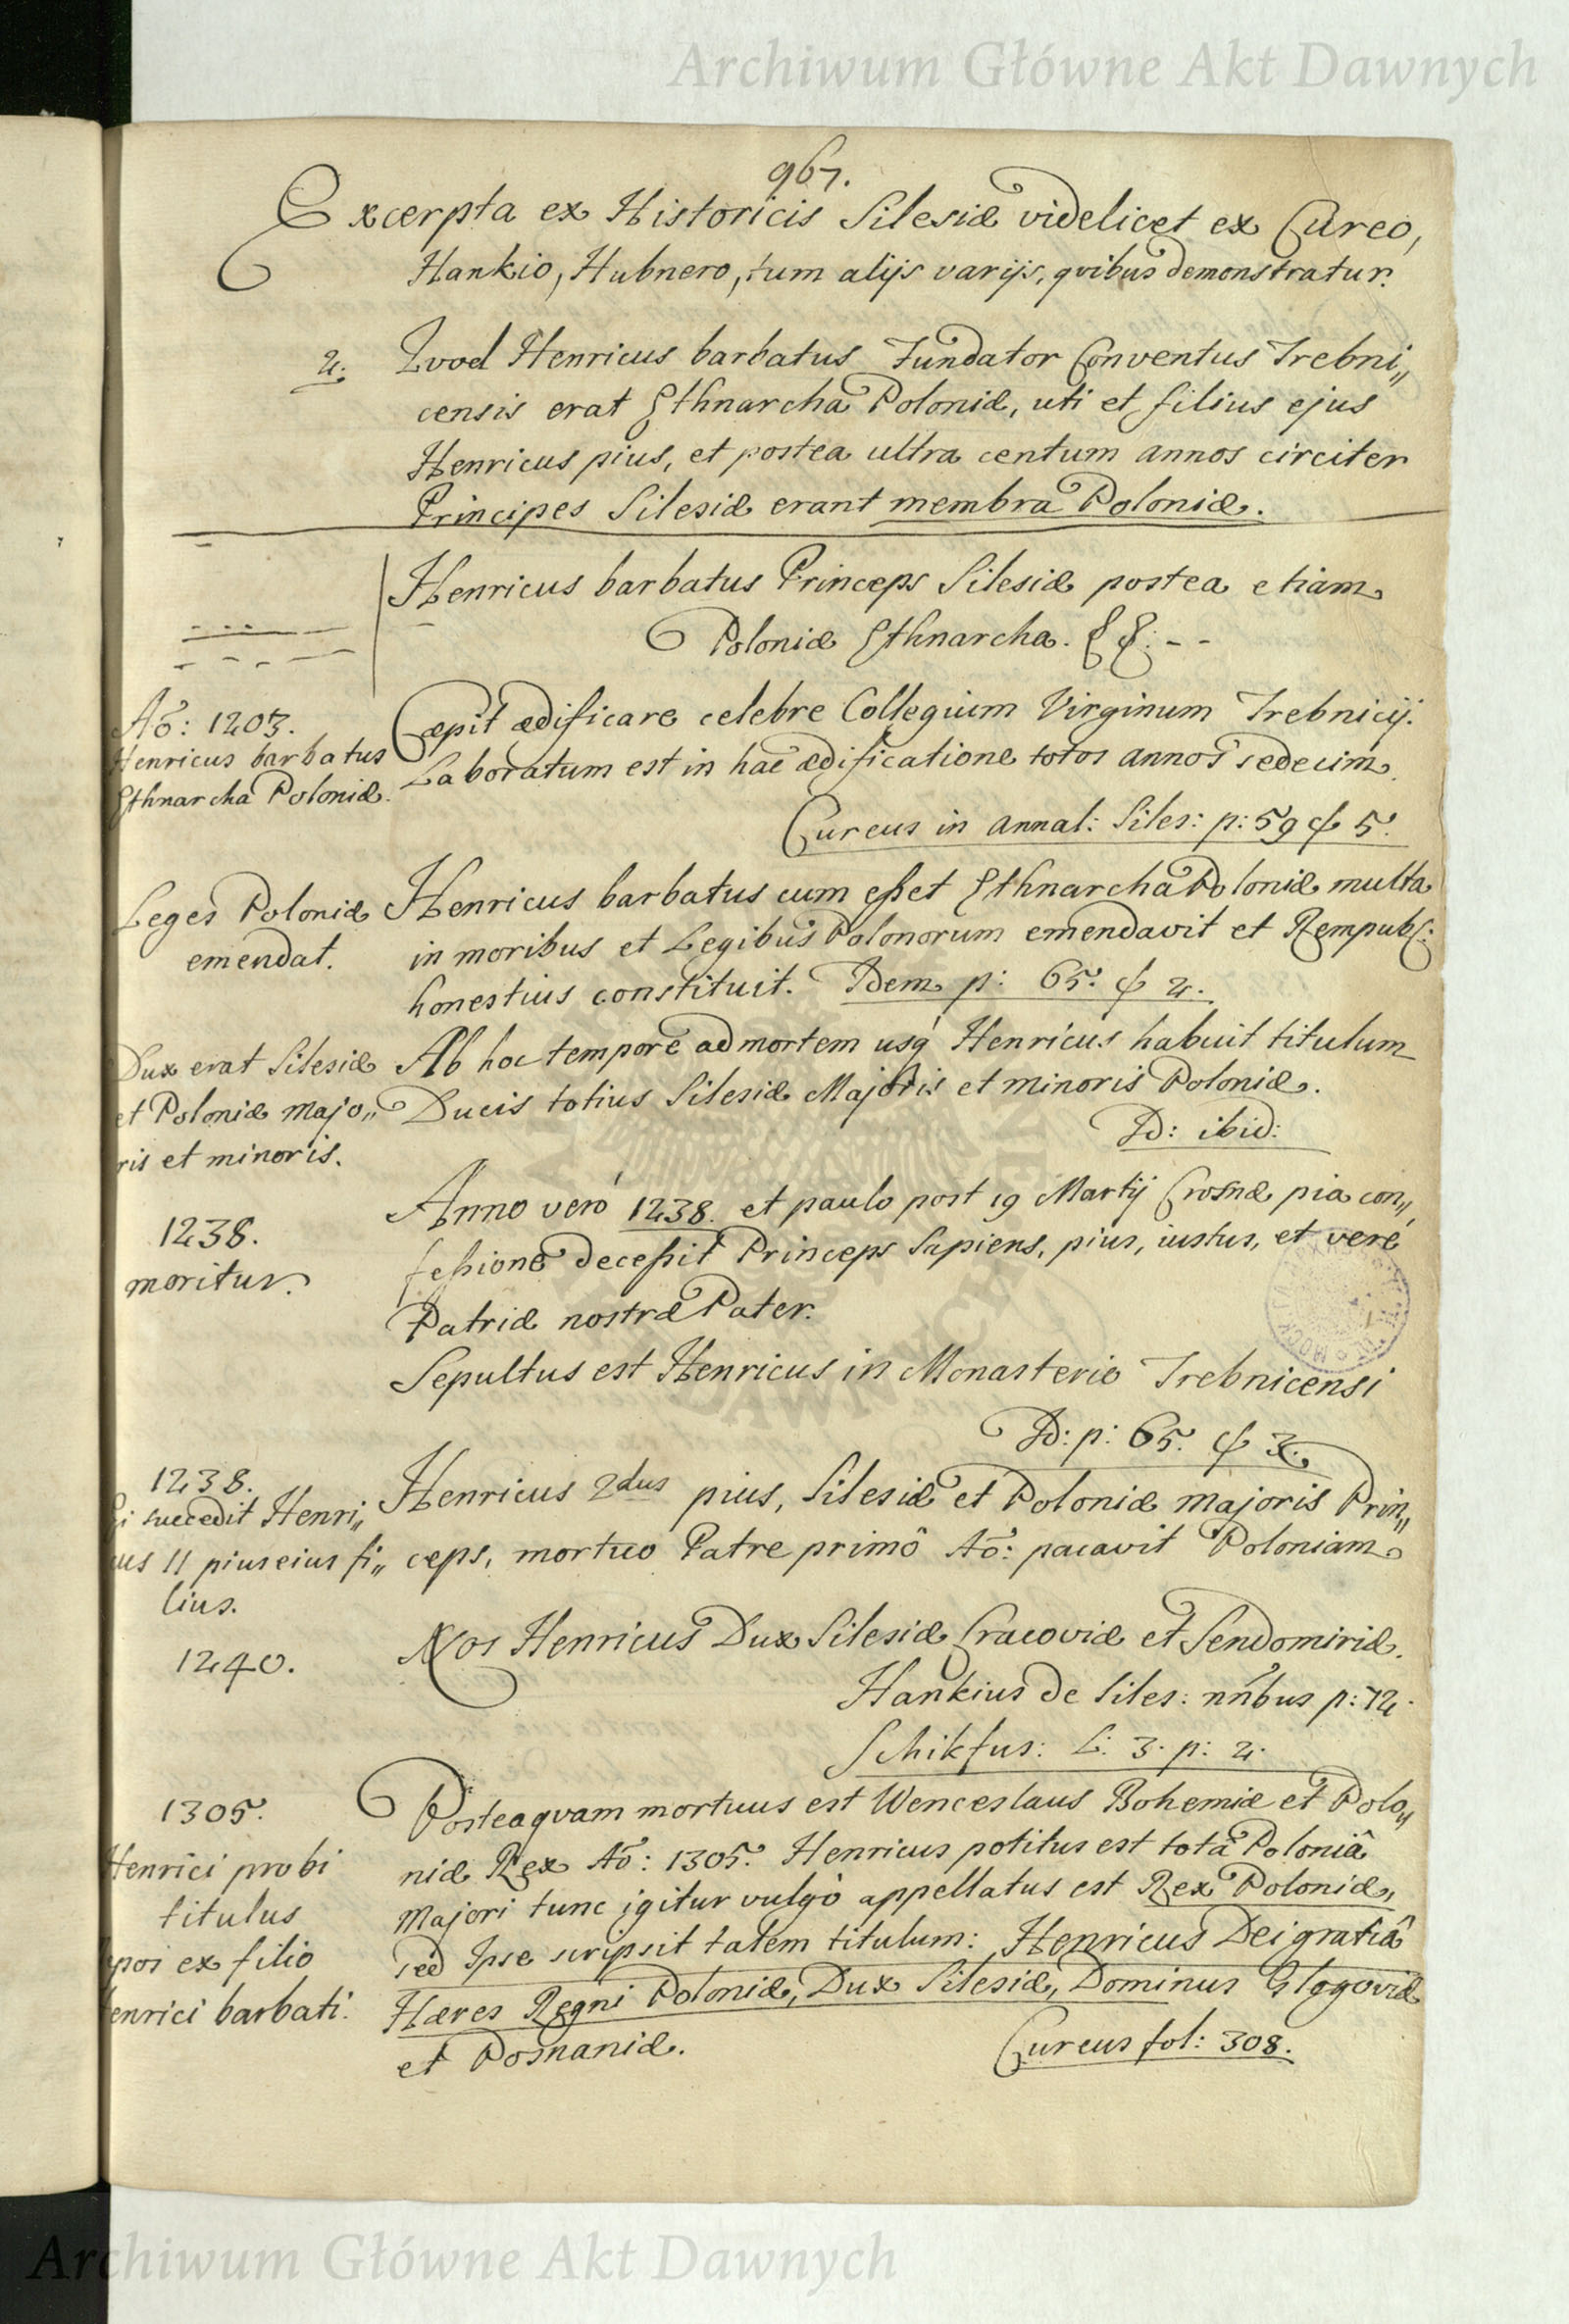 Archiwum Główne Akt Dawnych
967.
Excerpta ex Historicis Silesiæ videlicet ex Cureo,
Hankio, Hubnero, tum alijs varijs, qvibus demonstratur.
2. Qvod Henricus barbatus Fundator Conventus Trebni„
censis erat Ethnarcha Poloniæ, uti et filius ejus
Henricus pius, et postea ultra centum annos circiter
Principes Silesiæ erant membra Poloniæ.
Henricus barbatus Princeps Silesiæ postea etiam
Poloniæ Ethnarcha. - -
Aõ: 1203.
Henricus barbatus
Ethnarcha Poloniæ.
Cæpit ædificare celebre Collegium Virginum Trebnicij.
Laboratum est in hac ædificatione totos annos sedecim.
Cureus in annal: Siles: p: 59 & 5.
Leges Poloniæ
emendat.
Henricus barbatus cum esset Ethnarcha Poloniæ multa
in moribus et Legibus Polonorum emendavit et Rempubl:
honestius constituit. Idem p: 65. & 2.
Dux erat Silesiæ
et Poloniæ majo„
ris et minoris.
Ab hoc tempore ad mortem usq́ Henricus habuit titulum
Ducis totius Silesiæ Majoris et minoris Poloniæ.
Id: ibid:
1238.
moritur.
Anno veró 1238. et paulo post 19 Martij Crosnæ pia con„
fessione decessit Princeps Sapiens, pius, iustus, et veré
Patriæ nostræ Pater.
Sepultus est Henricus in Monasterio Trebnicensi
Id: p: 65. & 3.
1238.
Ei succedit Henri„
cus II pius eius fi„
lius.
Henricus 2dus pius, Silesiæ et Poloniæ majoris Prin„
ceps, mortuo Patre primô Aõ: pacavit Poloniam
1240.
Nos Henricus Dux Silesiæ Cracoviæ et Sendomiriæ.
Hankius de Siles: nñbus p: 72.
Schikfus: L: 3. p: 2.
1305.
Henrici probi
titulus
nepos ex filio
Henrici barbati.
Posteaqvam mortuus est Wenceslaus Bohemiæ et Polo„
niæ Rex Aõ: 1305. Henricus potitus est totâ Poloniâ
Majori tunc igitur vulgò appellatus est Rex Poloniæ,
sed Ipse scripsit talem titulum: Henricus Dei gratiâ
Hæres Regni Poloniæ, Dux Silesiæ, Dominus Glogoviæ
et Posnaniæ.
Cureus fol: 308.
Archiwum Główne Akt Dawnych